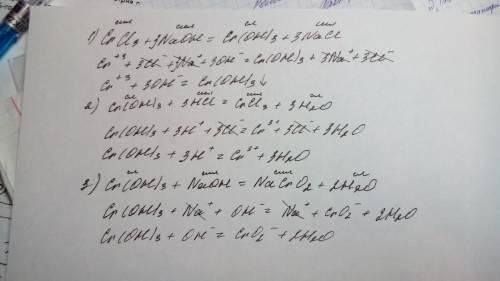 сил сил сл сил
1) CrCl3 + 3NaOH = Cr(OH)3 + 3NaCl
Cr⁺³ + 3Cl⁻ + 3Na⁺ + 3OH⁻ = Cr(OH)3 + 3Na⁺ + 3Cl⁻
Cr⁺³ + 3OH⁻ = Cr(OH)3↓
сл сил сил сл
2) Cr(OH)3 + 3HCl = CrCl3 + 3H2O
Cr(OH)3 + 3H⁺ + 3Cl⁻ = Cr³⁺ + 3Cl⁻ + 3H2O
Cr(OH)3 + 3H⁺ = Cr³⁺ + 3H2O
сл сил сил сл
3) Cr(OH)3 + NaOH = NaCrO2 + 2H2O
Cr(OH)3 + Na⁺ + OH⁻ = Na⁺ + CrO2⁻ + 2H2O
Cr(OH)3 + OH⁻ = CrO2⁻ + 2H2O